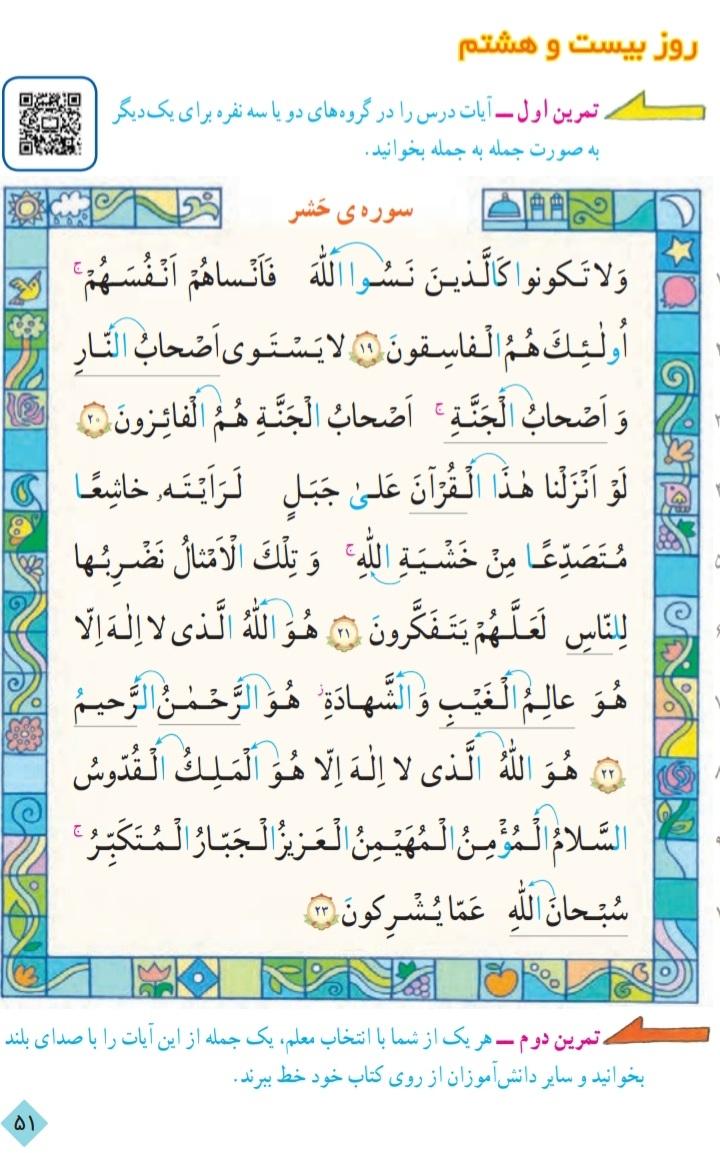 روز بیست و هشتم
تمرین اول ــ آیات درس را در گروه‌های دو یا سه نفره برای یک‌دیگر
به صورت جمله به جمله بخوانید.
سوره ی حَشر
وَلا تَکونوا کَالَّذینَ نَسُوا اللّٰهَ فَاَنْساهُمْ اَنْفُسَهُمْ ۚ
اُولٰئِکَ هُمُ الْفاسِقونَ ۱۹ لا یَسْتَوی اَصْحابُ النّارِ
وَ اَصْحابُ الْجَنَّةِ ۚ اَصْحابُ الْجَنَّةِ هُمُ الْفائِزونَ ۲۰
لَوْ اَنْزَلْنا هٰذَا الْقُرْآنَ عَلیٰ جَبَلٍ لَرَاَیْتَهٗ خاشِعًا
مُتَصَدِّعًا مِنْ خَشْیَةِ اللّٰهِ ۚ وَ تِلْکَ الْاَمْثالُ نَضْرِبُها
لِلنّاسِ لَعَلَّهُمْ یَتَفَکَّرونَ ۲۱ هُوَ اللّٰهُ الَّذی لا اِلٰهَ اِلّا
هُوَ عالِمُ الْغَیْبِ وَ الشَّهادَةِ ۖ هُوَ الرَّحْمٰنُ الرَّحیمُ
۲۲ هُوَ اللّٰهُ الَّذی لا اِلٰهَ اِلّا هُوَ الْمَلِکُ الْقُدّوسُ
السَّلامُ الْمُؤْمِنُ الْمُهَیْمِنُ الْعَزیزُ الْجَبّارُ الْمُتَکَبِّرُ ۚ
سُبْحانَ اللّٰهِ عَمّا یُشْرِکونَ ۲۳
تمرین دوم ــ هر یک از شما با انتخاب معلم، یک جمله از این آیات را با صدای بلند
بخوانید و سایر دانش‌آموزان از روی کتاب خود خط ببرند.
۵۱